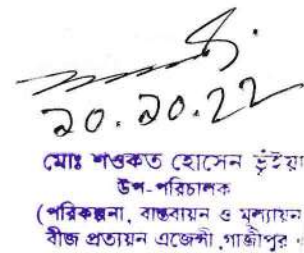 ২০.১০.২২
মোঃ শওকত হোসেন ভূঁইয়া
উপ-পরিচালক
(পরিকল্পনা, বাস্তবায়ন ও মূল্যায়ন
বীজ প্রত্যয়ন এজেন্সী, গাজীপুর